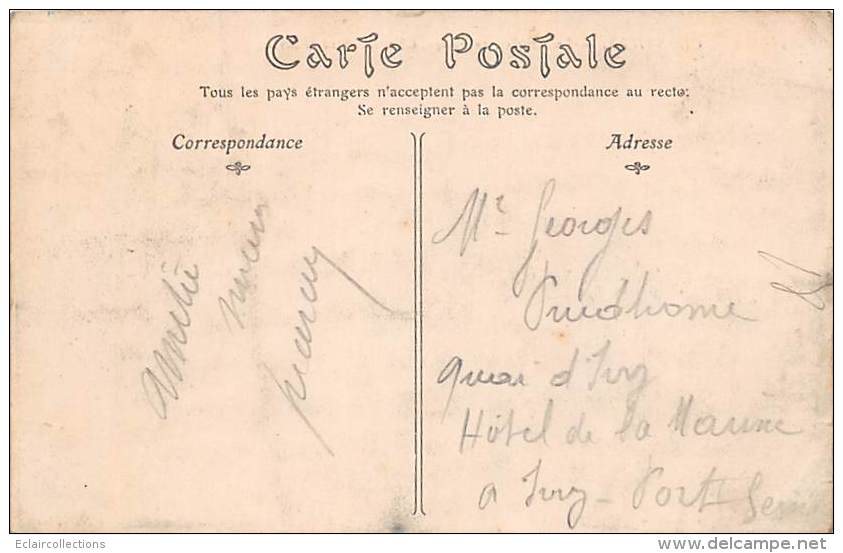 Carte Postale
Tous les pays étrangers n'acceptent pas la correspondance au recto;
Se renseigner à la poste.
Correspondance
Adresse
amitié
Mr Georges
Prudhome
quai d'Ivry
Hôtel de la Marine
a Ivry - Port Seine
Eclaircollections
http://www.delcampe.net